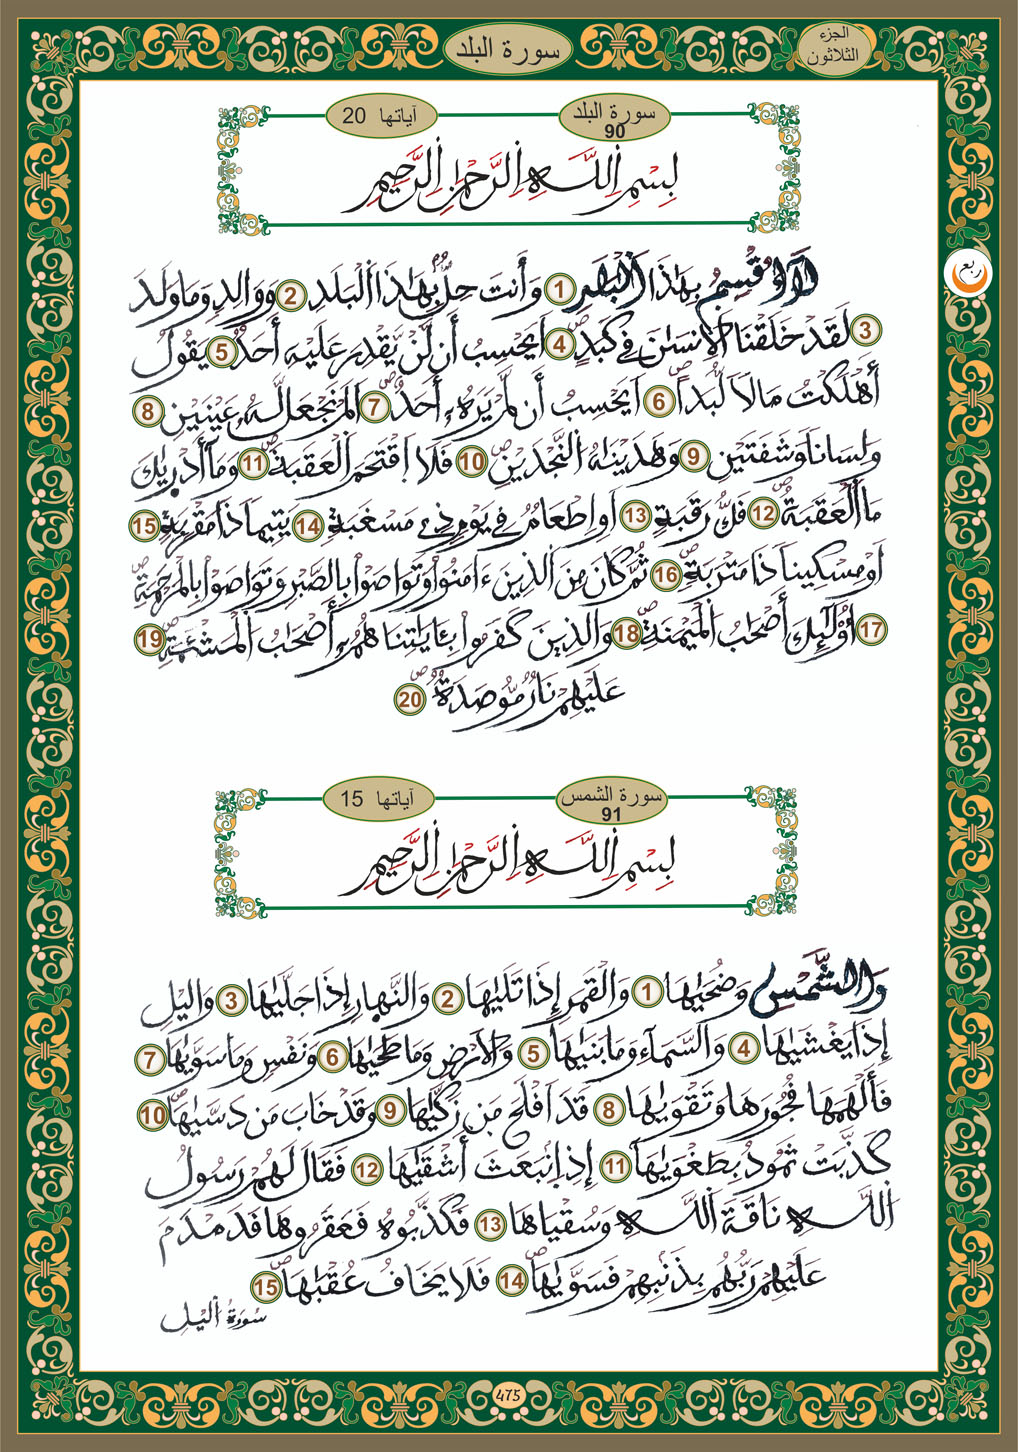 الجزء
الثلاثون
سورة البلد
سورة البلد
90
آياتها 20
بِسْمِ اِللَّهِ اِلرَّحْمَٰنِ اِلرَّحِيمِ
لَا أُقْسِمُ بِهَٰذَا اَلْبَلَدِ 1 وَأَنتَ حِلٌّ بِهَٰذَا اَلْبَلَدِ 2 وَوَالِدٍ وَمَا وَلَدَ
3 لَقَدْ خَلَقْنَا اَلْإِنسَٰنَ فِي كَبَدٍ 4 أَيَحْسِبُ أَن لَّنْ يَّقْدِرَ عَلَيْهِ أَحَدٌ 5 يَقُولُ
أَهْلَكْتُ مَالًا لُّبَدًا 6 أَيَحْسِبُ أَن لَّمْ يَرَهُۥ أَحَدٌ 7 أَلَمْ نَجْعَل لَّهُۥ عَيْنَيْنِ 8
وَلِسَانًا وَشَفَتَيْنِ 9 وَهَدَيْنَٰهُ اُلنَّجْدَيْنِ 10 فَلَا اَقْتَحَمَ اَلْعَقَبَةَ 11 وَمَا أَدْرَيٰكَ
مَا اَلْعَقَبَةُ 12 فَكُّ رَقَبَةٍ 13 اَوِ اِطْعَٰمٌ فِي يَوْمٍ ذِي مَسْغَبَةٍ 14 يَتِيمًا ذَا مَقْرَبَةٍ 15
اَوْ مِسْكِينًا ذَا مَتْرَبَةٍ 16 ثُمَّ كَانَ مِنَ اَلذِينَ ءَامَنُوا وَتَوَاصَوْا بِالصَّبْرِ وَتَوَاصَوْا بِالْمَرْحَمَةِ
17 أُوْلَٰئِكَ أَصْحَٰبُ اُلْمَيْمَنَةِ 18 وَالذِينَ كَفَرُوا بِـَٔايَٰتِنَا هُمُۥ أَصْحَٰبُ اُلْمَشْـَٔمَةِ 19
عَلَيْهِمْ نَارٌ مُّوصَدَةٌ 20
سورة الشمس
91
آياتها 15
بِسْمِ اِللَّهِ اِلرَّحْمَٰنِ اِلرَّحِيمِ
وَالشَّمْسِ وَضُحَيٰهَا 1 وَالْقَمَرِ إِذَا تَلَيٰهَا 2 وَالنَّهَارِ إِذَا جَلَّيٰهَا 3 وَاليْلِ
إِذَا يَغْشَيٰهَا 4 وَالسَّمَاءِ وَمَا بَنَيٰهَا 5 وَالَارْضِ وَمَا طَحَيٰهَا 6 وَنَفْسٍ وَمَا سَوَّيٰهَا 7
فَأَلْهَمَهَا فُجُورَهَا وَتَقْوَيٰهَا 8 قَدَ اَفْلَحَ مَن زَكَّيٰهَا 9 وَقَدْ خَابَ مَن دَسَّيٰهَا 10
كَذَّبَتْ ثَمُودُ بِطَغْوَيٰهَا 11 إِذِ اِنبَعَثَ أَشْقَيٰهَا 12 فَقَالَ لَهُمْ رَسُولُ
اُللَّهِ نَاقَةَ اَللَّهِ وَسُقْيَاهَا 13 فَكَذَّبُوهُ فَعَقَرُوهَا فَدَمْدَمَ
عَلَيْهِمْ رَبُّهُم بِذَنۢبِهِمْ فَسَوَّيٰهَا 14 فَلَا يَخَافُ عُقْبَٰهَا 15
سُورَةُ اُليْلِ
ربع
475